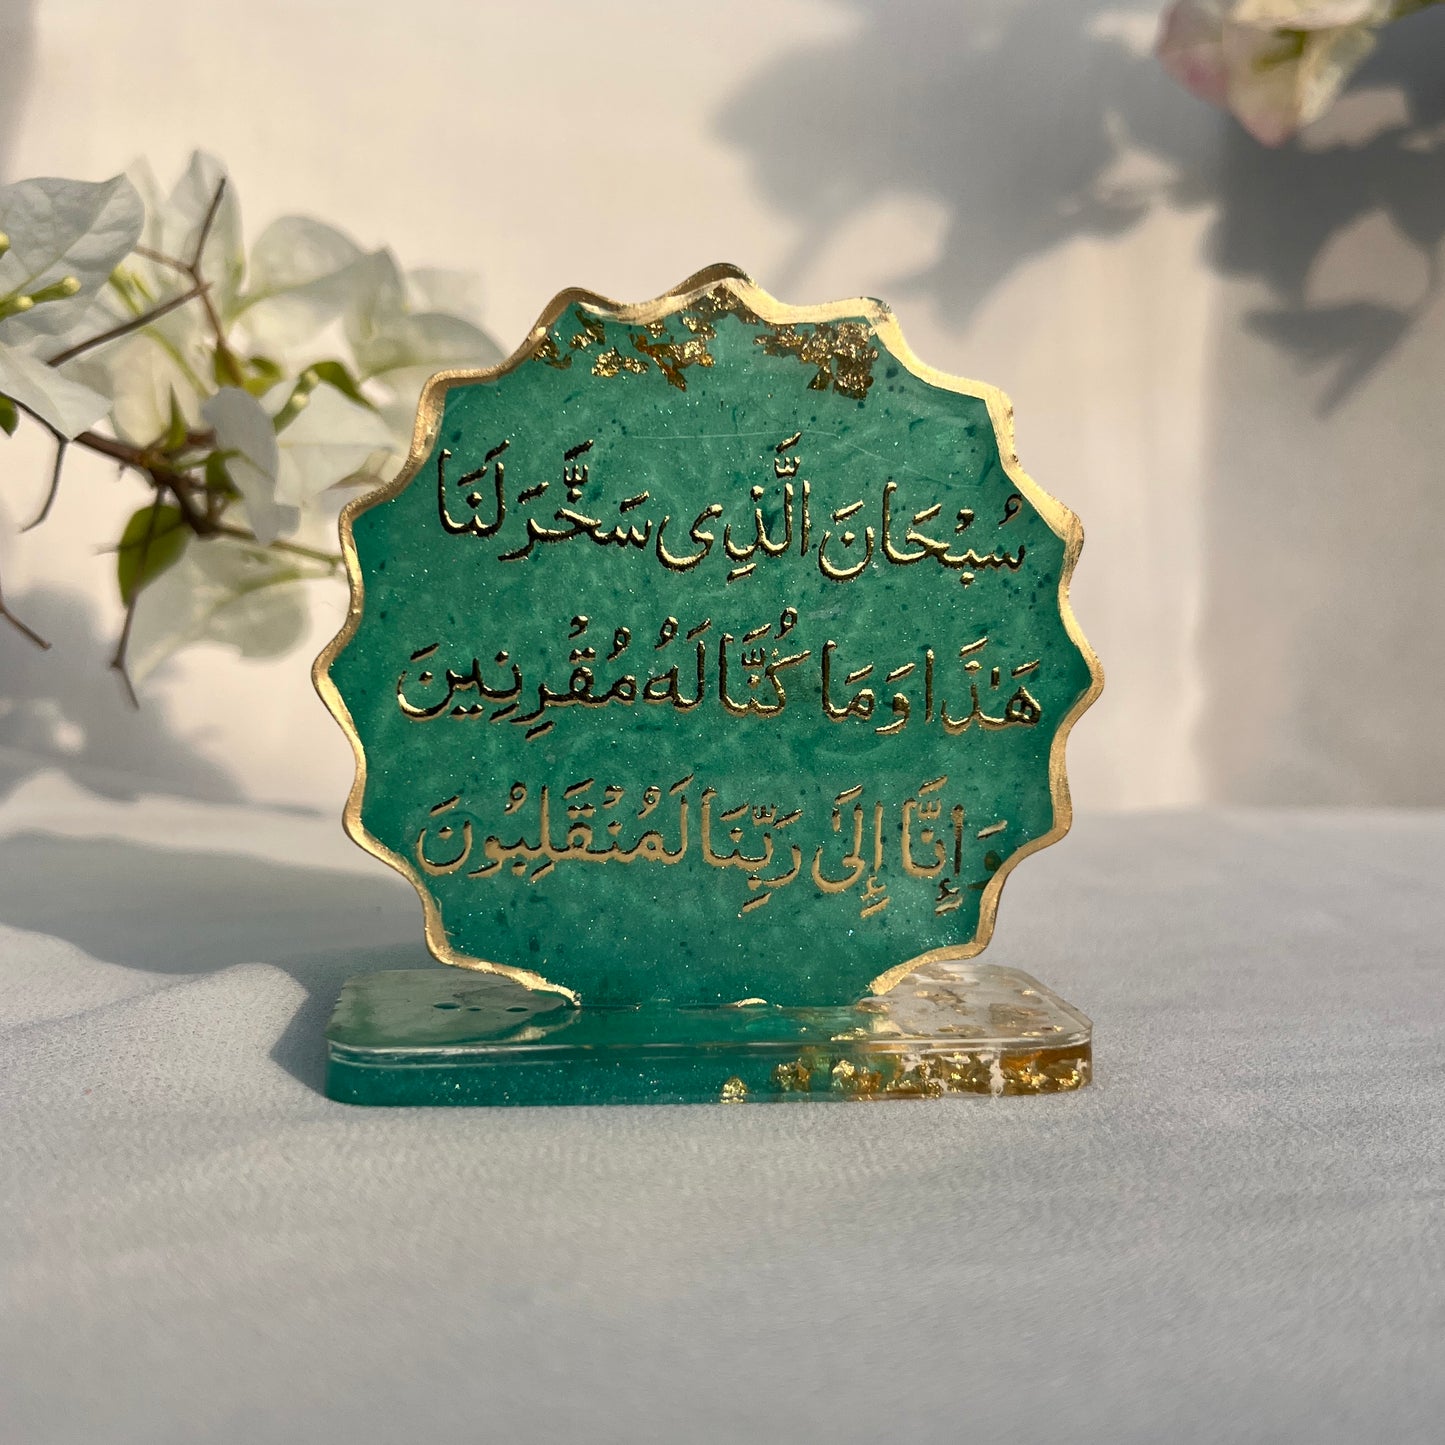 سُبْحَانَ الَّذِى سَخَّرَ لَنَا
هَٰذَا وَمَا كُنَّا لَهُ مُقْرِنِينَ
وَ إِنَّا إِلَىٰ رَبِّنَا لَمُنْقَلِبُونَ